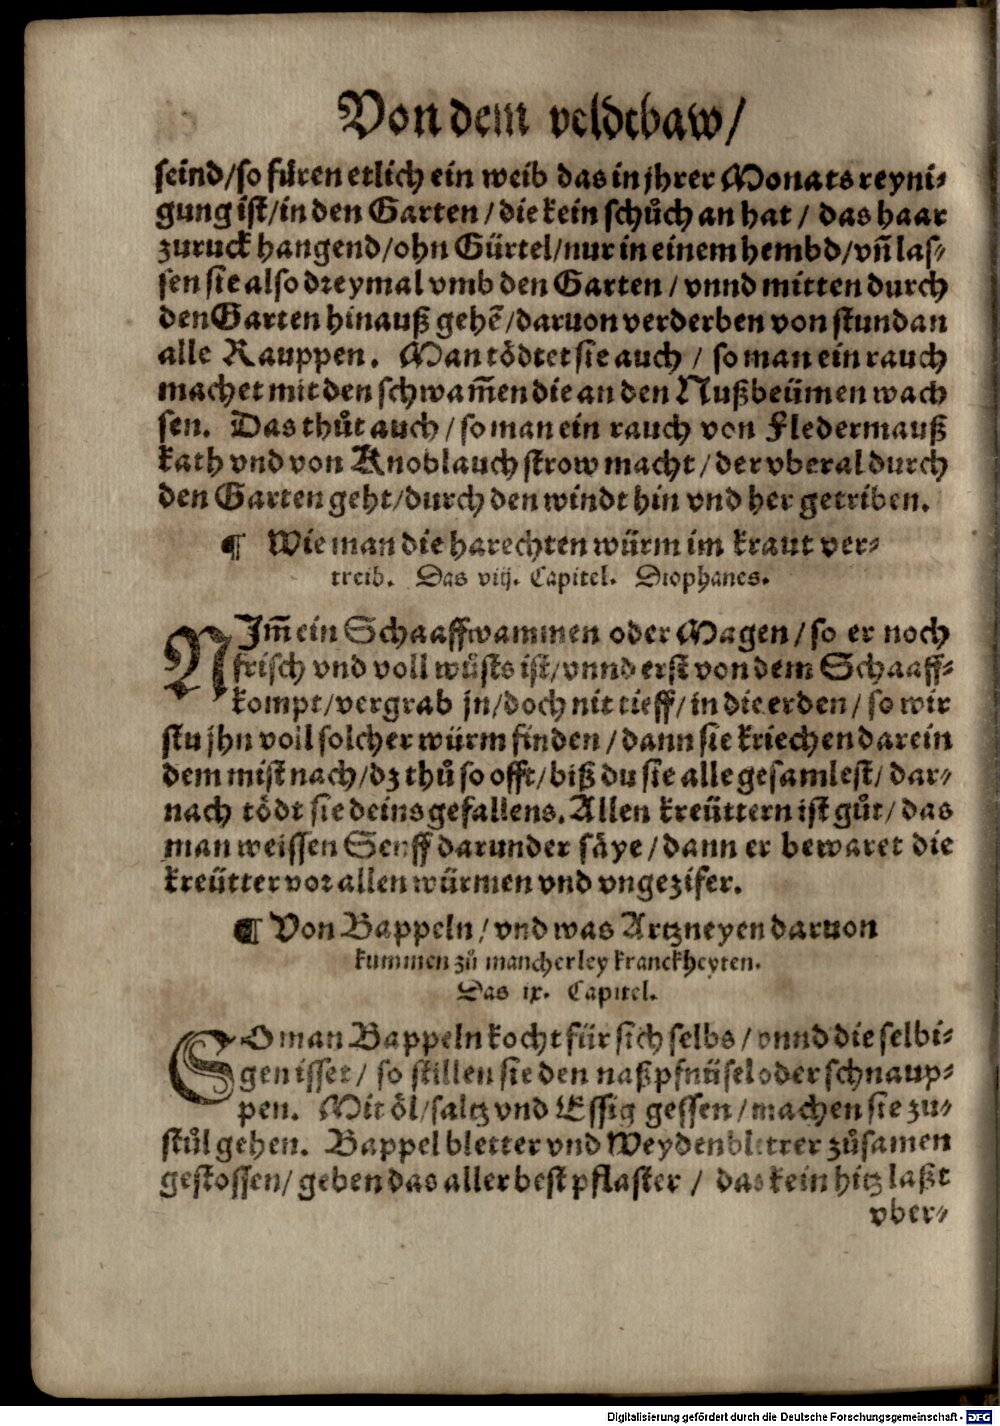 Von dem veldtbaw/
seind/so fůren etlich ein weib das in jhrer Monats reyni⸗
gung ist/in den Garten/die kein schůch an hat/ das haar
zuruck hangend/ohn Gürtel/nur in einem hembd/vñ las⸗
sen sie also dreymal vmb den Garten/ vnnd mitten durch
den Garten hinauß gehẽ/daruon verderben von stund an
alle Rauppen. Man tödtet sie auch/ so man ein rauch
machet mit den schwam̃en die an den Nußbeümen wach
sen. Das thůt auch/so man ein rauch von Fledermauß
kath vnd von Knoblauch strow macht/der vberal durch
den Garten geht/durch den windt hin vnd her getriben.
¶ Wie man die harechten würm im kraut ver⸗
treib. Das viij. Capitel. Diophanes.
NIm̃ ein Schaaffwammen oder Magen/so er noch
frisch vnd voll wůsts ist/vnnd erst von dem Schaaff⸗
kompt/vergrab jn/doch nit tieff/in die erden/ so wir
stu jhn voll solcher würm finden/dann sie kriechen darein
dem mist nach/dz thů so offt/biß du sie alle gesamlest/ dar⸗
nach tödt sie deins gefallens. Allen kreüttern ist gůt/das
man weissen Senff darunder säye/dann er bewaret die
kreütter vor allen würmen vnd vngezifer.
¶ Von Bappeln/vnd was Artzneyen daruon
kummen zů mancherley kranckheyten.
Das ix. Capitel.
SO man Bappeln kocht für sich selbs/vnnd die selbi⸗
gen isset/ so stillen sie den naßpfnüsel oder schnaup⸗
pen. Mit öl/saltz vnd Essig gessen/machen sie zu⸗
stůl gehen. Bappel bletter vnd Weydenbletter zůsamen
gestossen/geben das aller best pflaster/ das kein hitz laßt
vber⸗
Digitalisierung gefördert durch die Deutsche Forschungsgemeinschaft - DFG